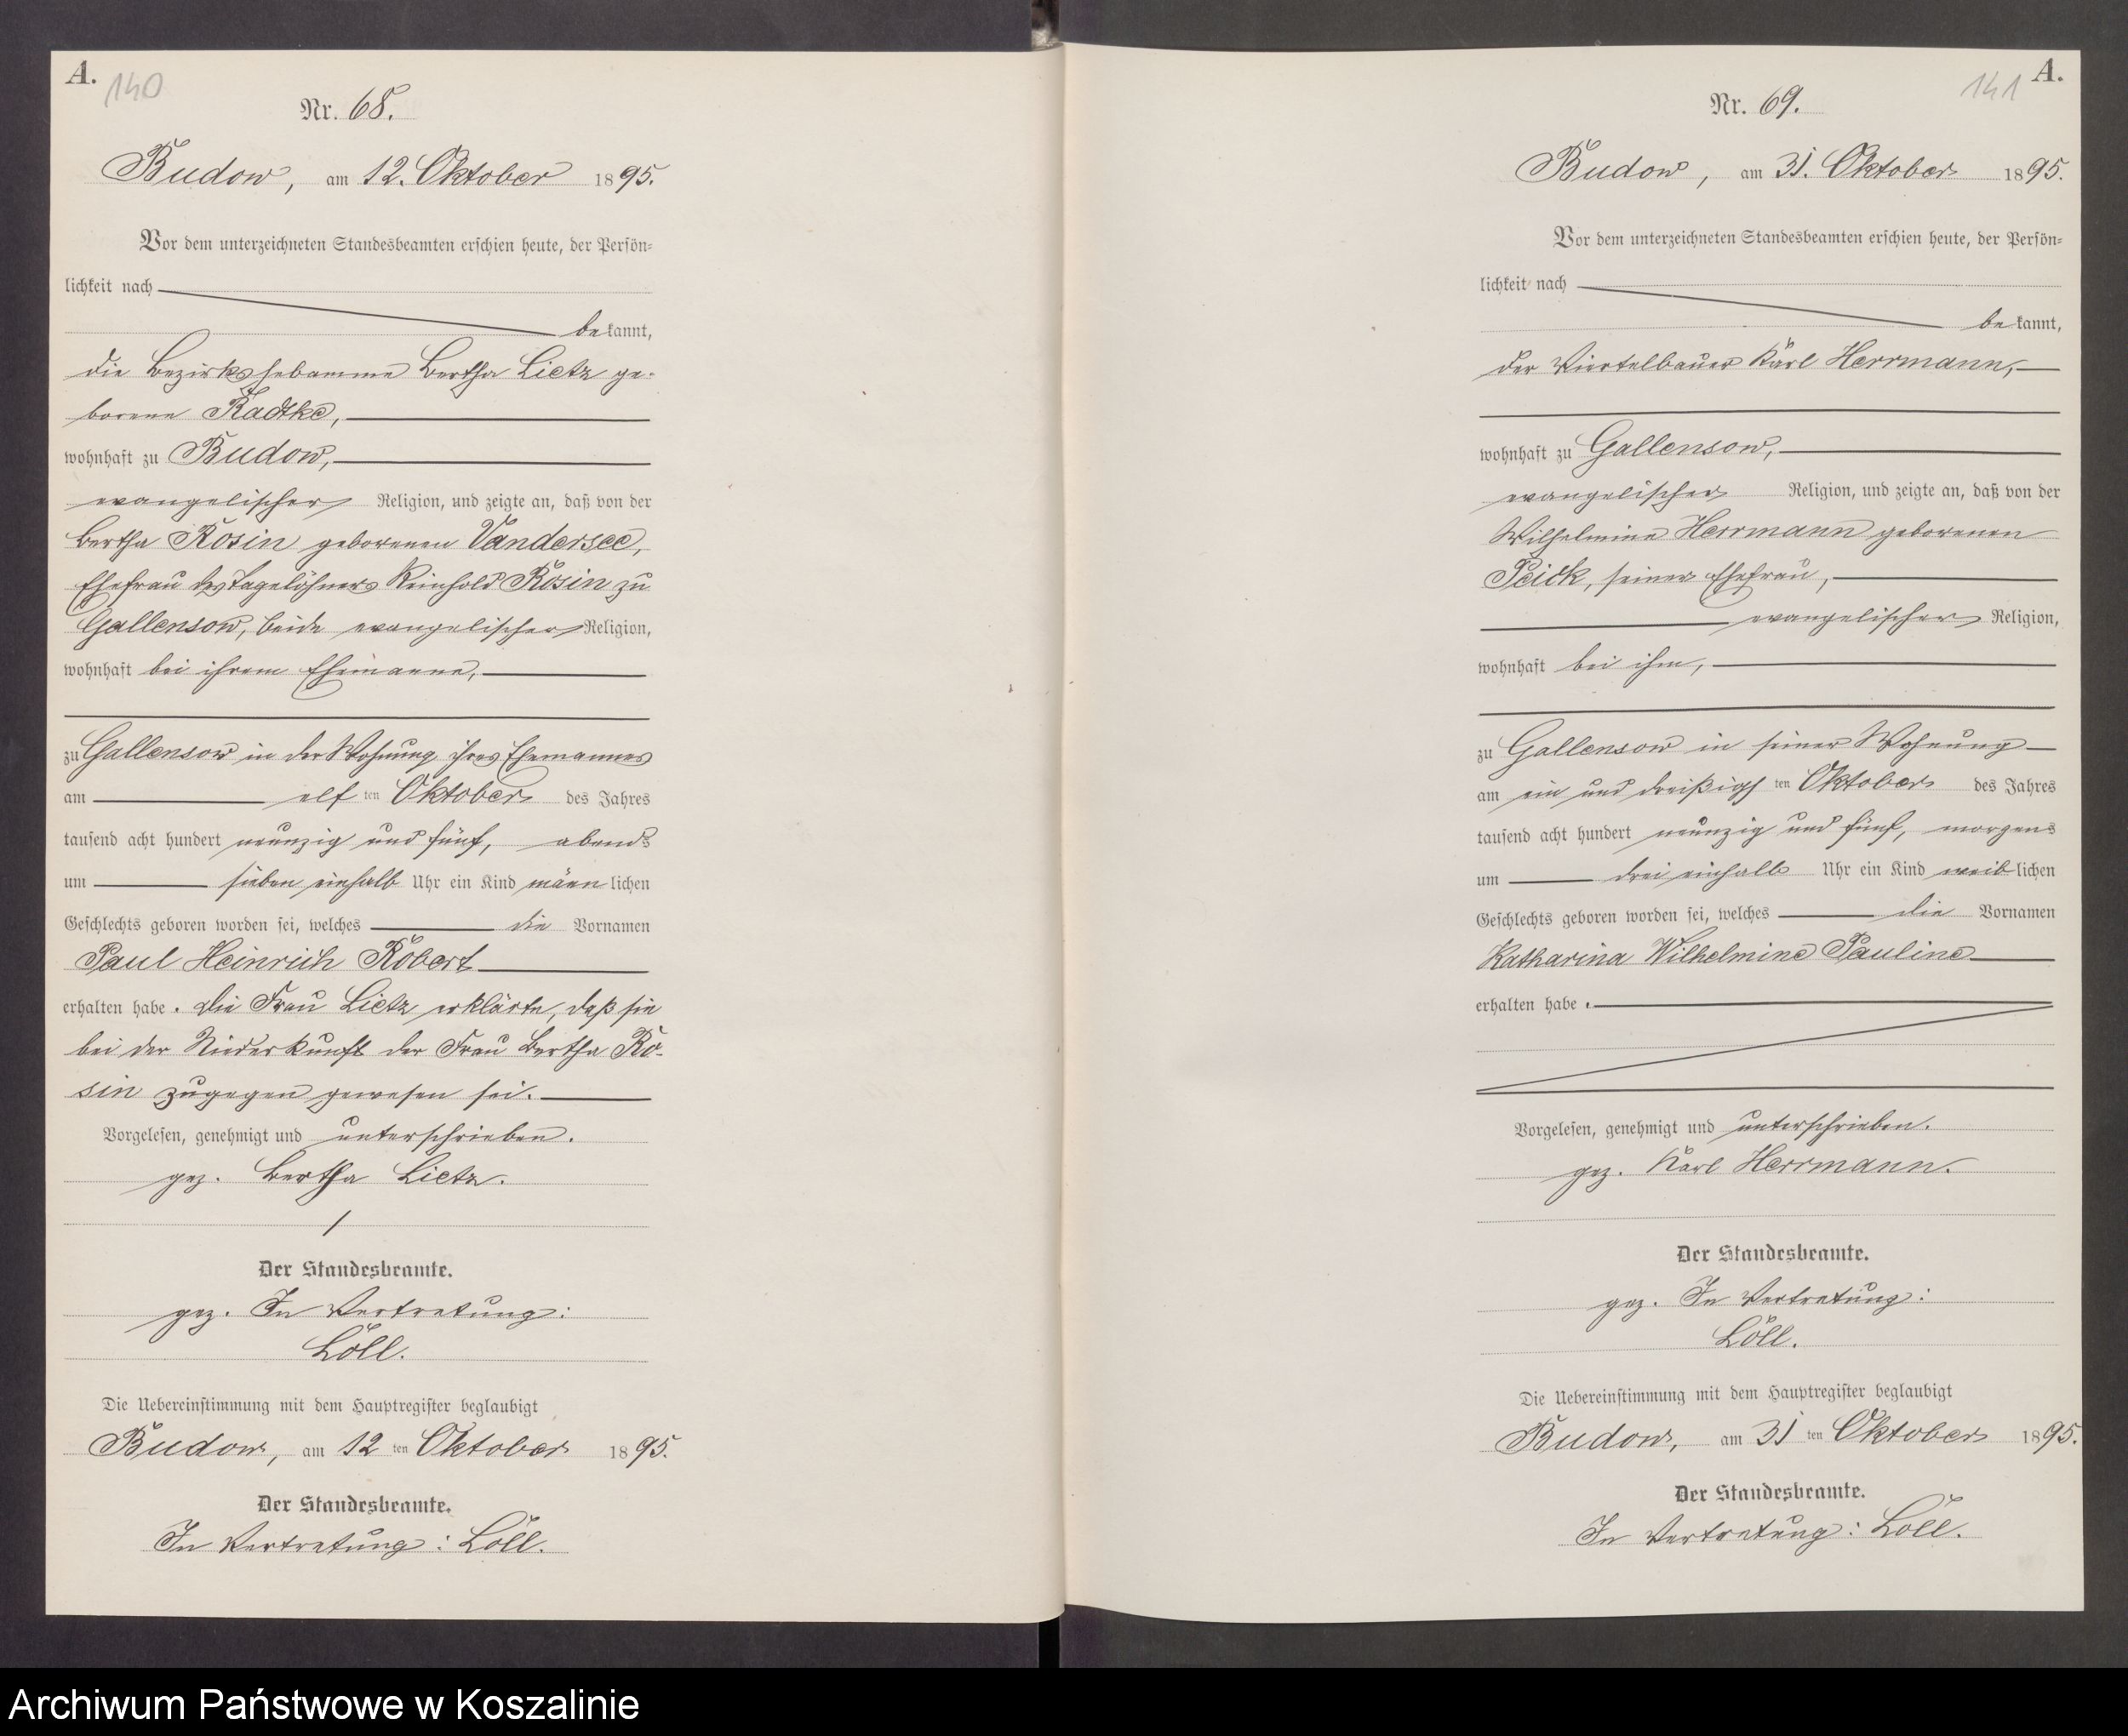 A.
140
Nr. 68.
Budow, am 12. Oktober 1895.
Vor dem unterzeichneten Standesbeamten erschien heute, der Persön=
lichkeit nach
bekannt,
die Bezirkshebamme Bertha Lietz ge-
borene Radtke,
wohnhaft zu Budow,
evangelischer Religion, und zeigte an, daß von der
Bertha Rosin geborenen Vandersee,
Ehefrau des Tagelöhners Reinhold Rosin zu
Gallensow, beide evangelischer Religion,
wohnhaft bei ihrem Ehemanne,
zu Gallensow in der Wohnung ihres Ehemannes
am elf ten Oktober des Jahres
tausend acht hundert neunzig und fünf, abends
um sieben einhalb Uhr ein Kind männlichen
Geschlechts geboren worden sei, welches die Vornamen
Paul Heinrich Robert
erhalten habe. Die Frau Lietz erklärte, daß sie
bei der Niederkunft der Frau Bertha Ro-
sin zugegen gewesen sei.
Vorgelesen, genehmigt und unterschrieben.
gez. Bertha Lietz.
Der Standesbeamte.
gez. In Vertretung:
Löll.
Die Uebereinstimmung mit dem Hauptregister beglaubigt
Budow, am 12 ten Oktober 1895.
Der Standesbeamte.
In Vertretung: Löll.
A.
141
Nr. 69.
Budow, am 31. Oktober 1895.
Vor dem unterzeichneten Standesbeamten erschien heute, der Persön=
lichkeit nach
bekannt,
der Viertelbauer Karl Herrmann,
wohnhaft zu Gallensow,
evangelischer Religion, und zeigte an, daß von der
Wilhelmine Herrmann geborenen
Peick, seiner Ehefrau,
evangelischer Religion,
wohnhaft bei ihm,
zu Gallensow in seiner Wohnung
am ein und dreißigs ten Oktober des Jahres
tausend acht hundert neunzig und fünf, morgens
um drei einhalb Uhr ein Kind weiblichen
Geschlechts geboren worden sei, welches die Vornamen
Katharina Wilhelmine Pauline
erhalten habe.
Vorgelesen, genehmigt und unterschrieben.
gez. Karl Herrmann.
Der Standesbeamte.
gez. In Vertretung:
Löll.
Die Uebereinstimmung mit dem Hauptregister beglaubigt
Budow, am 31 ten Oktober 1895.
Der Standesbeamte.
In Vertretung: Löll.
Archiwum Państwowe w Koszalinie